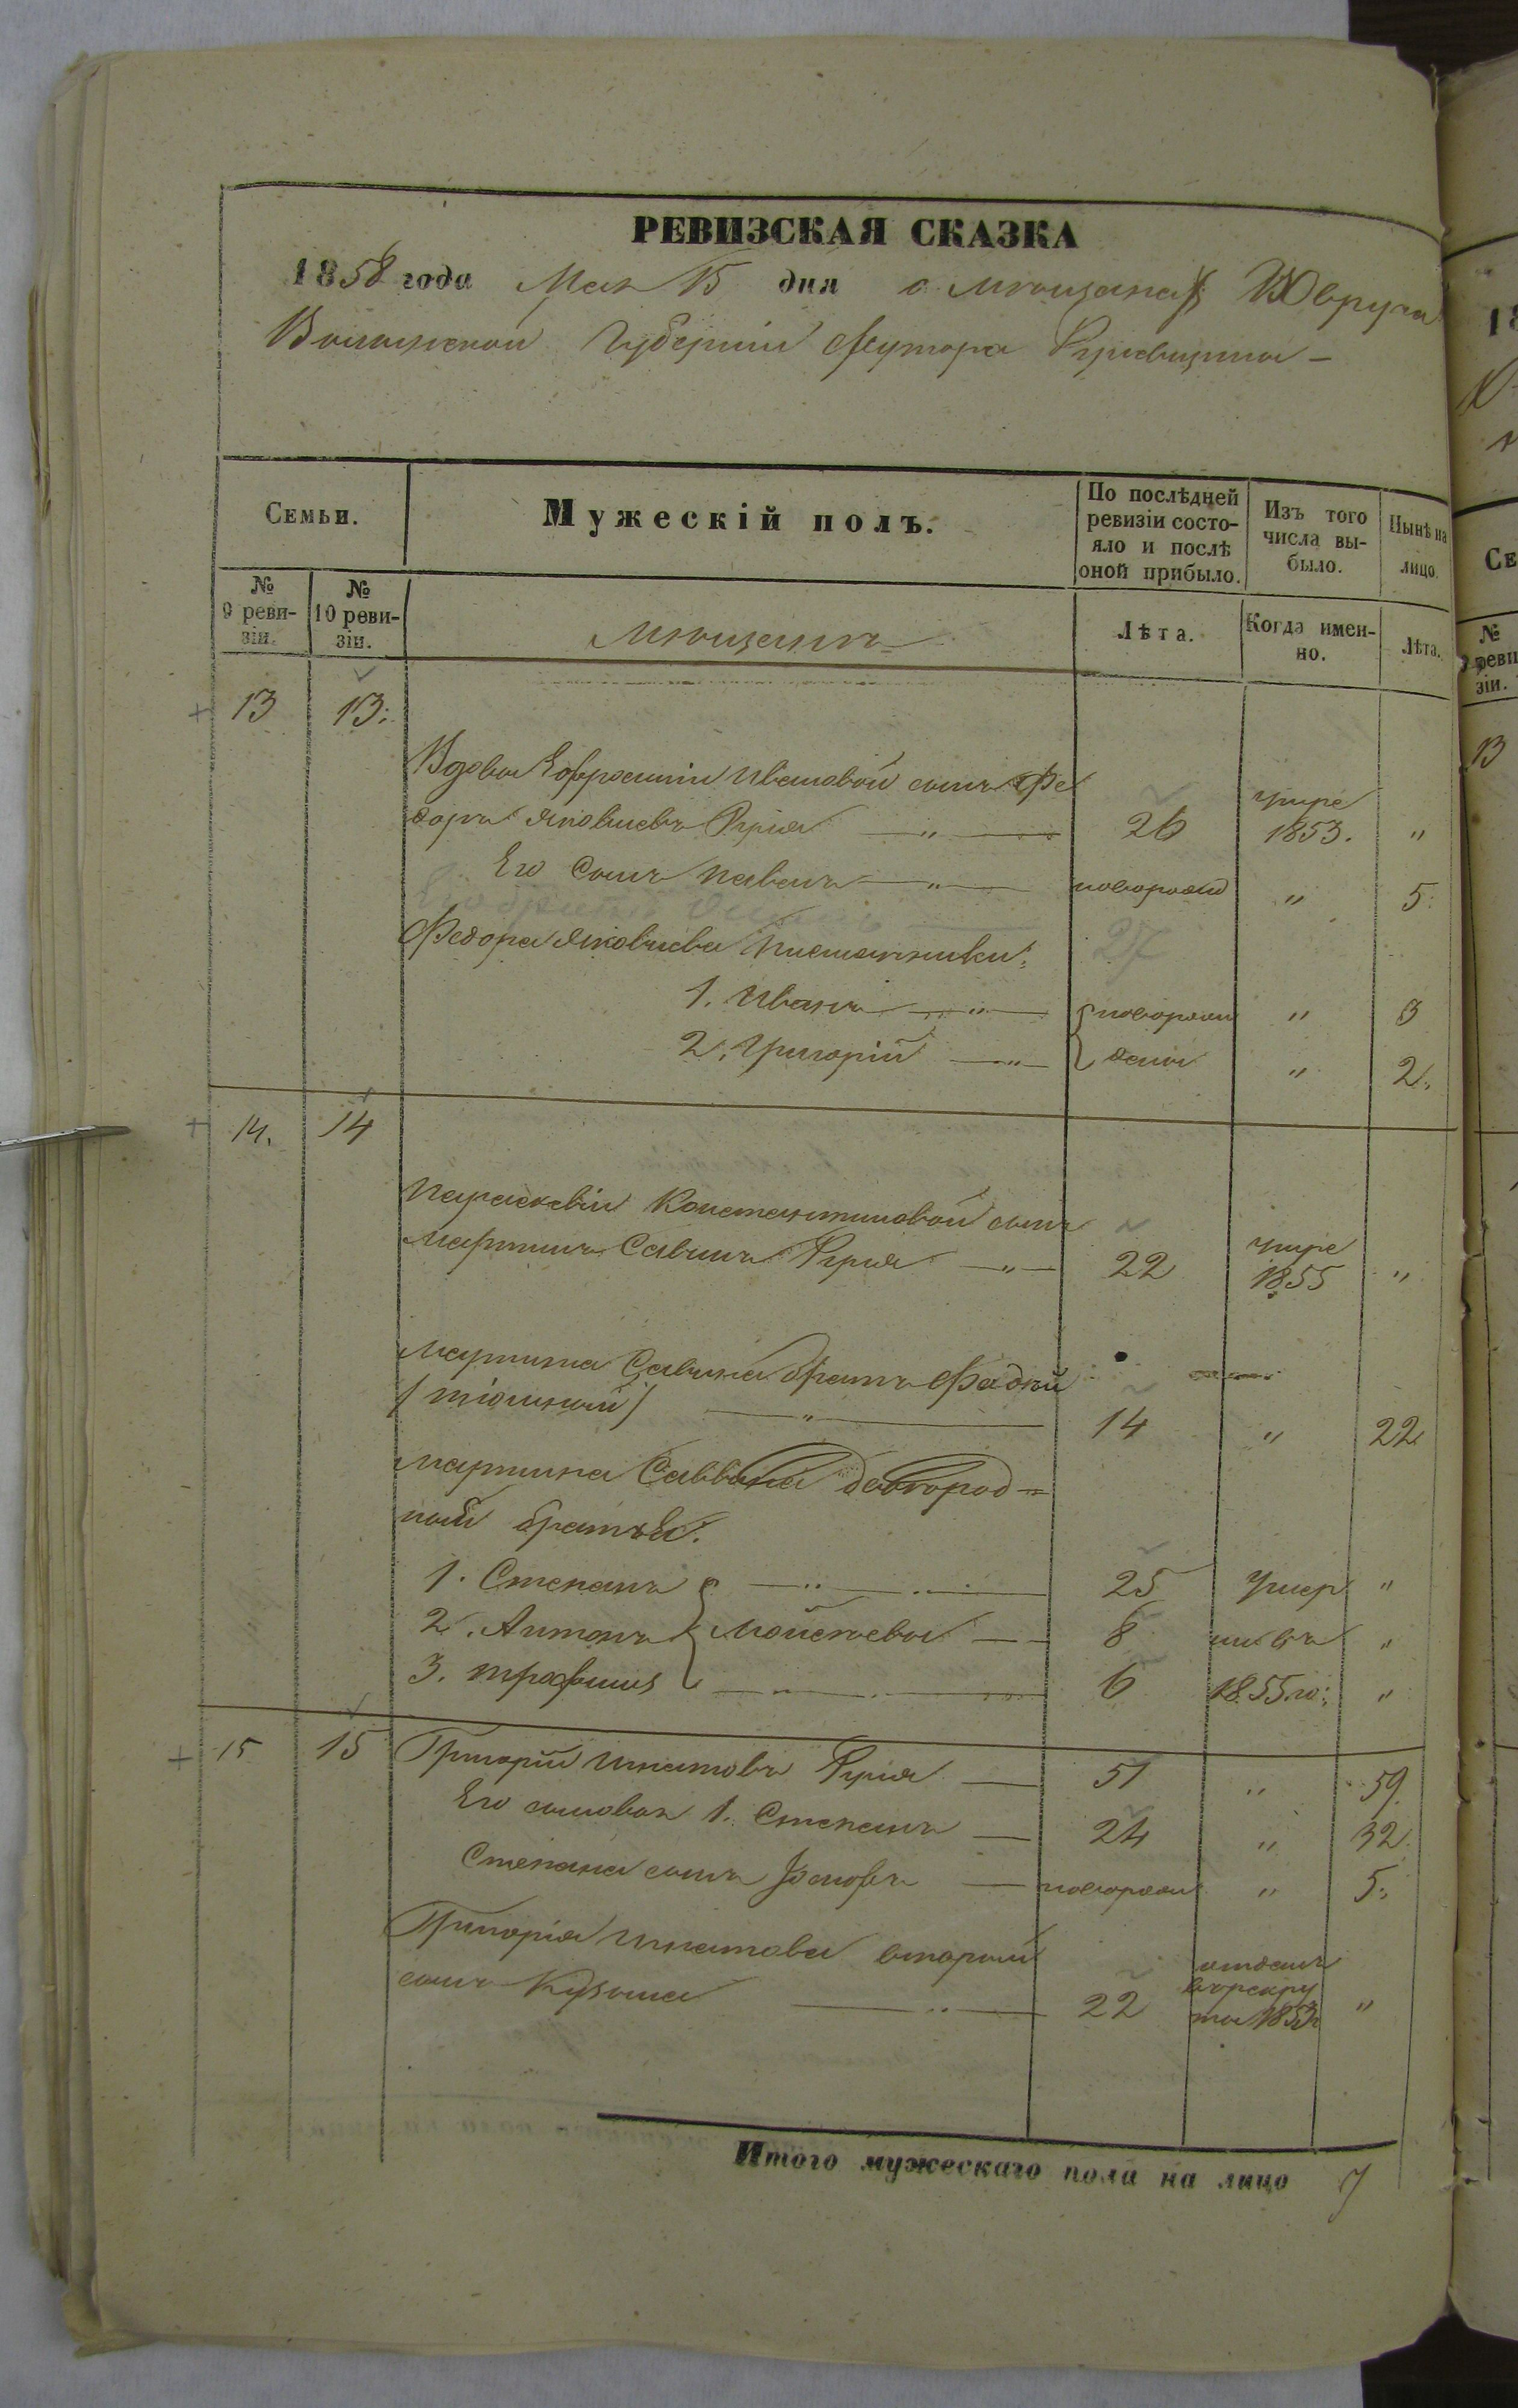 РЕВИЗСКАЯ СКАЗКА
1858 года Мая 15 дня о мѣщанахъ Овруча
Волынской Губерніи хутора
Семьи.
Мужескій полъ.
По послѣдней ревизіи состояло и послѣ оной прибыло.
Изъ того числа выбыло.
Нынѣ на лицо.
№ 9 ревизіи.
№ 10 ревизіи.
мѣщанъ
Лѣта.
Когда именно.
Лѣта.
13 13.
Вдовы Ефросиніи Ивановой сынъ Фе
доръ Яковлевъ 26 умре 1853. „
Его сынъ Павелъ — „ — новорожд „ 5.
27
Федора Яковлева племянники:
1. Иванъ — „ — новорож „ 3
2. Григорій — „ — дены „ 2.
14. 14
Параскевіи Константиновой сынъ
Мартинъ Савинъ — „ — 22 умре 1855 „
Мартина Савина братъ Фадѣй
14 „ 22
Мартина Саввина двоюрод=
ный братья:
1. Степанъ — „ — 25 умер „
2. Антонъ Мойсеевы — 8 ли въ „
3. Трофимъ — „ — 6 1855 го: „
15 15 Григорій Игнатовъ — 51 „ 59.
Его сыновья 1. Степанъ — 24 „ 32.
Степана сынъ Іосифъ — новорож „ 5.
Григорія Игнатова вторый
сынъ Кузьма — „ — 22 отданъ въ рекру ты 1853 „
Итого мужескаго пола на лицо 7